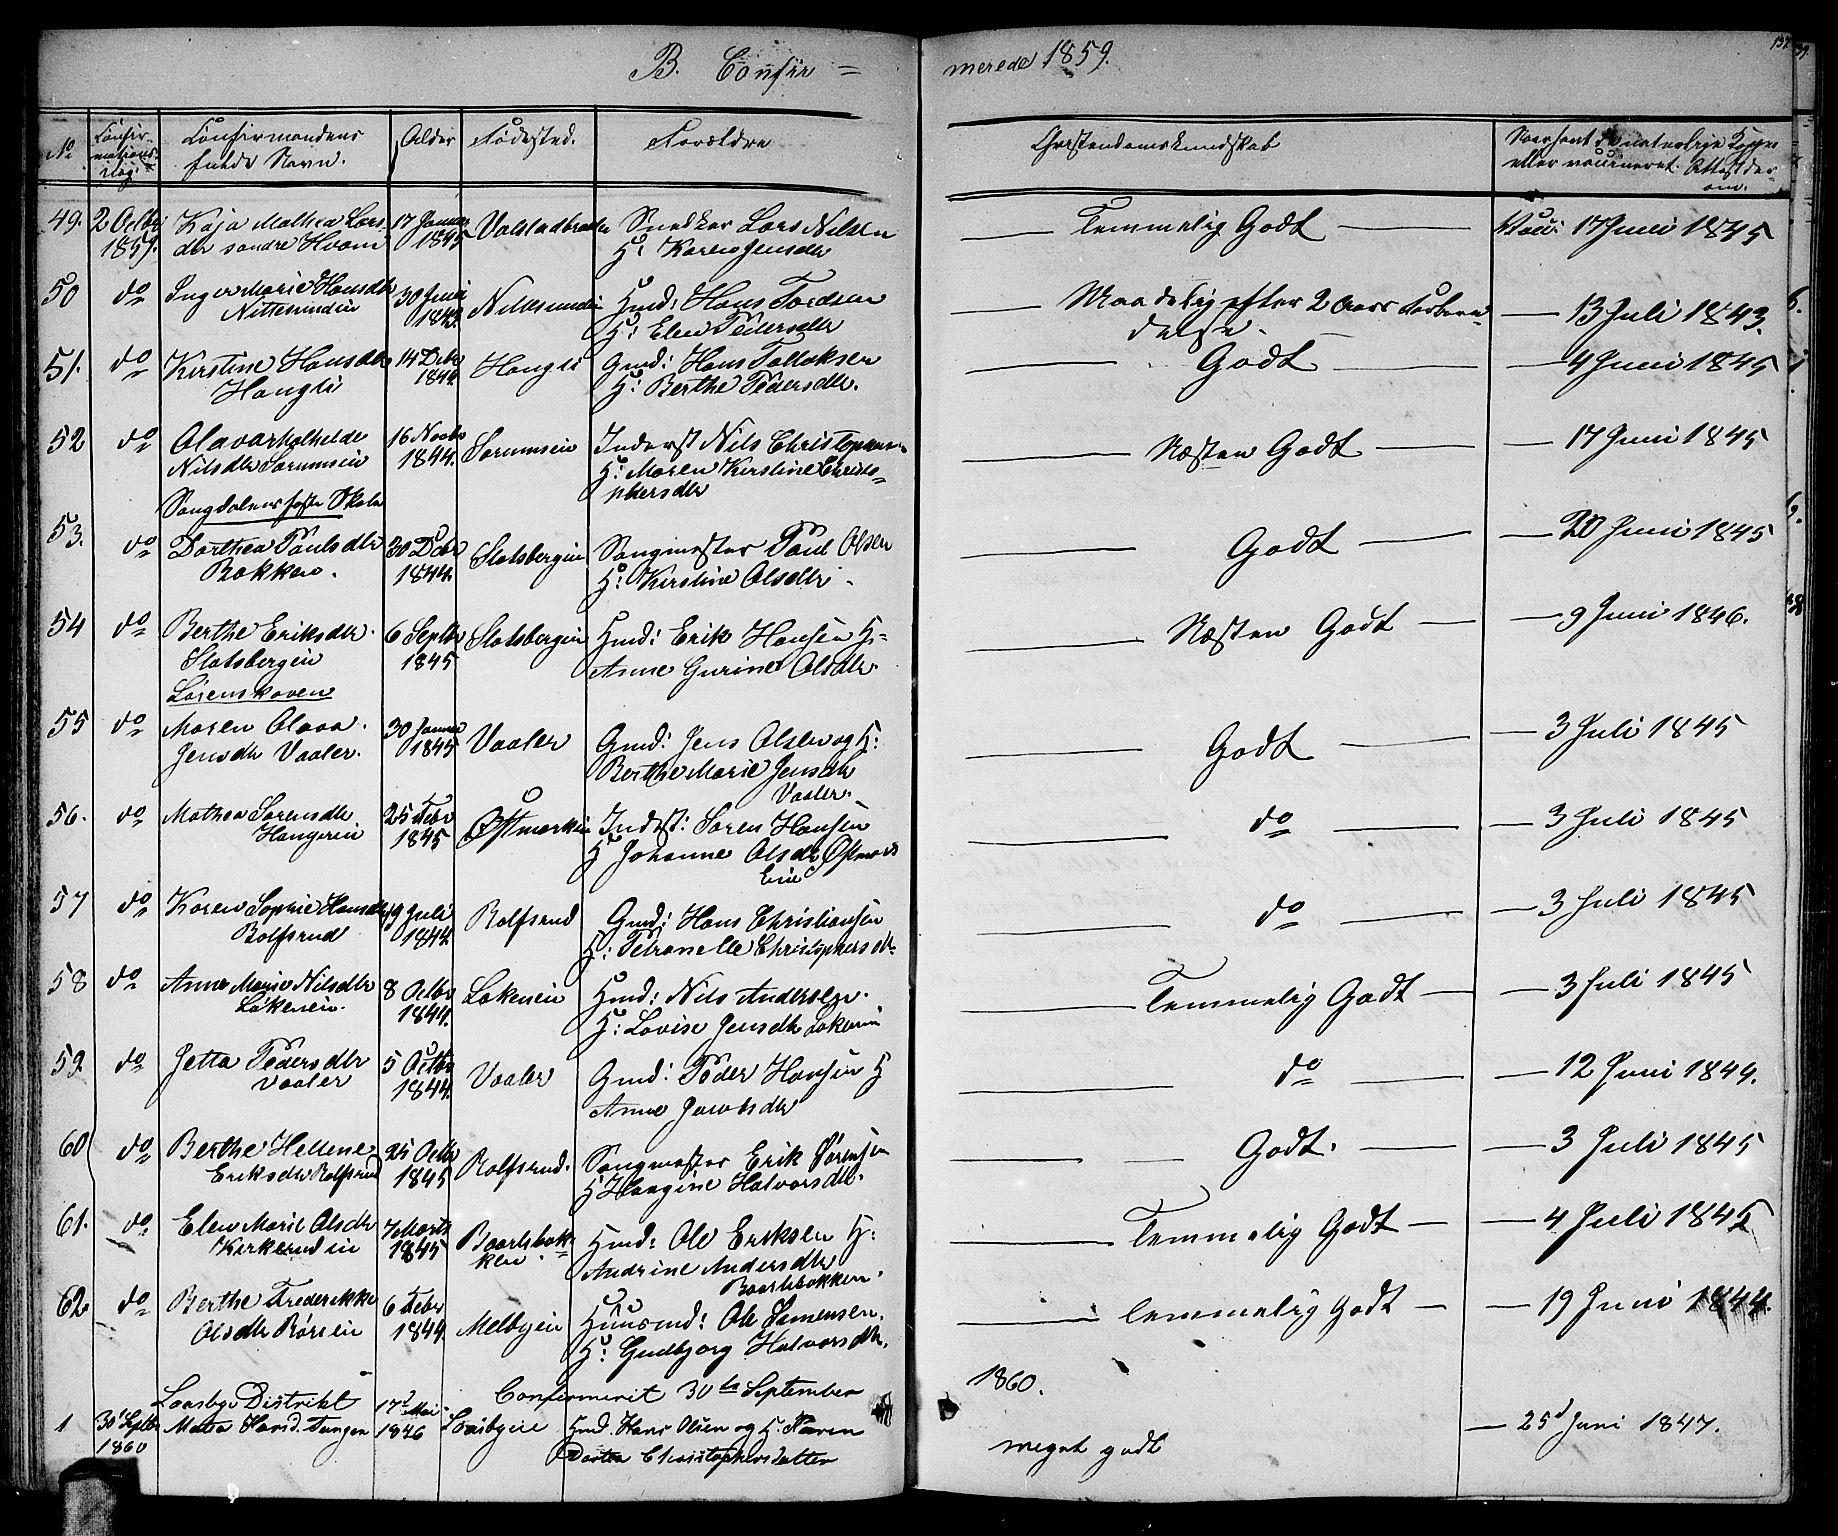 B. Confir=
merede 1859.
137
No
Confir-
mations
dag.
Confirmandens
fulde Navn.
Alder
Fødested.
Forældre
Christendomskundskab
Naar havt de naturlige Kopper
eller vaccineret. Attest der-
om.
49. 2 Octbr 1859. Kaja Mathea Lars
dr søndre Hvam 17 Januar 1845 Snedker Lars Nilsen
H: Karen Jensdr Temmelig Godt Vacc: 17 Juni 1845
50 do Inger Marie Hansdr
Nittesundin 30 Juni 1843. Nittesundin Hmd: Hans Tordsen
H: Elen Pedersdr Maadelig efter 2 Aars Forbere-
delse. 13 Juli 1843.
51. do Kirstine Hansdr
Hangli 14 Debr 1844 Hangli Gmd: Hans Tollaksen
H: Berthe Pedersdr. Godt 4 Juni 1845
52 do
Nilsdr Sørumsein 16 Novbr 1844. Sørumsein Inderst Nils Christophersen
H: Maren Kirstine Christo-
phersdr Næsten Godt 17 Juni 1845
faste Skole
53. do Dorthea Paulsdr
Bakken. 30 Debr 1844. Slatsbergin Sangmester Paul Olsen
H: Kirstine Olsdr. Godt 20 Juni 1845
54 do Berthe Eriksdr.
Slatsbergin 6 Septbr 1845 Slatsbergin Hmd: Erik Hansen H=
Anne Gurine Olsdr. Næsten Godt 9 Juni 1846.
Lørenskoven
55 do Maren Olava.
Jensdr Vaaler. 30 Januar 1845 Vaaler Gmd: Jens Olsen og H:
Berthe Marie Jensdr
Vaaler. Godt 3 Juli 1845
56. do Mathea Sørensdr
Hangerein 25 Febr 1845 Østmarkin Inderst: Søren Hansen
H Johanne Olsdr Østmark
Ein do 3 Juli 1845
57 do Karen Sophie Hansdr
Rolfsrud 19 Juli 1844. Rolfsrud Gmd: Hans Christiansen
H: Petronelle Christophersdr. do 3 Juli 1845
58 do Anne Marie Nilsdr
Løkenein. 8 Octbr 1844. Løkenein Hmd: Nils Andersen.
H: Lovise Jensdr Løkenein Temmelig Godt 3 Juli 1845
59. do Jetta Pedersdr
Vaaler 5 Octbr 1844. Vaaler Gmd: Peder Hansen H
Anne Jacobsdr do 12 Juni 1849.
60 do Berthe Hellene
Eriksdr Rolfsrud 25 Octbr 1845 Rolfsrud. Sangmester Erik Sørensen
H Hangine Halvorsdr. Godt. 3 Juli 1845
61. do Elen Marie Olsdr
Kirkerudein 7 Marts 1845 Baarlibak-
ken. Hmd: Ole Eriksen H:
Andrine Andersdr
Baarlibakken. Temmelig Godt 4 Juli 1845
62. do Berthe Frederikke
Olsdr Børsein 6 Febr 1844. Melbyein Huusmd: Ole Simensen.
H: Gudbjørg Halvorsdr. Temmelig Godt 19 Juni 1844.
Distrikt Confirmerit 30te September
1860.
1 30 Septbr 1860 Mathea Hansd. Tangen 17d Mai 1846 Hmd. Hans Olsen og H. Karen
Dortea Christophersdatter meget godt 25d Juni 1847.